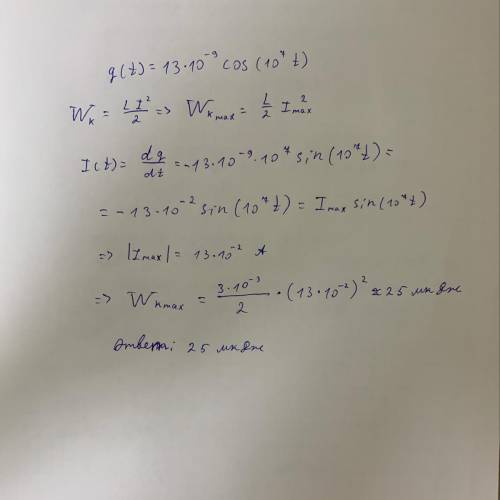 q(t) = 13·10⁻⁹ cos(10⁷t)
W_k = LI²/2 => W_k max = L/2 I²max
I(t) = dq/dt = -13·10⁻⁹·10⁷ sin(10⁷t) =
= -13·10⁻² sin(10⁷t) = Imax sin(10⁷t)
=> |Imax| = 13·10⁻² А
=> W_k max = 3·10⁻³/2 · (13·10⁻²)² ≈ 25 мкДж
Ответ: 25 мкДж